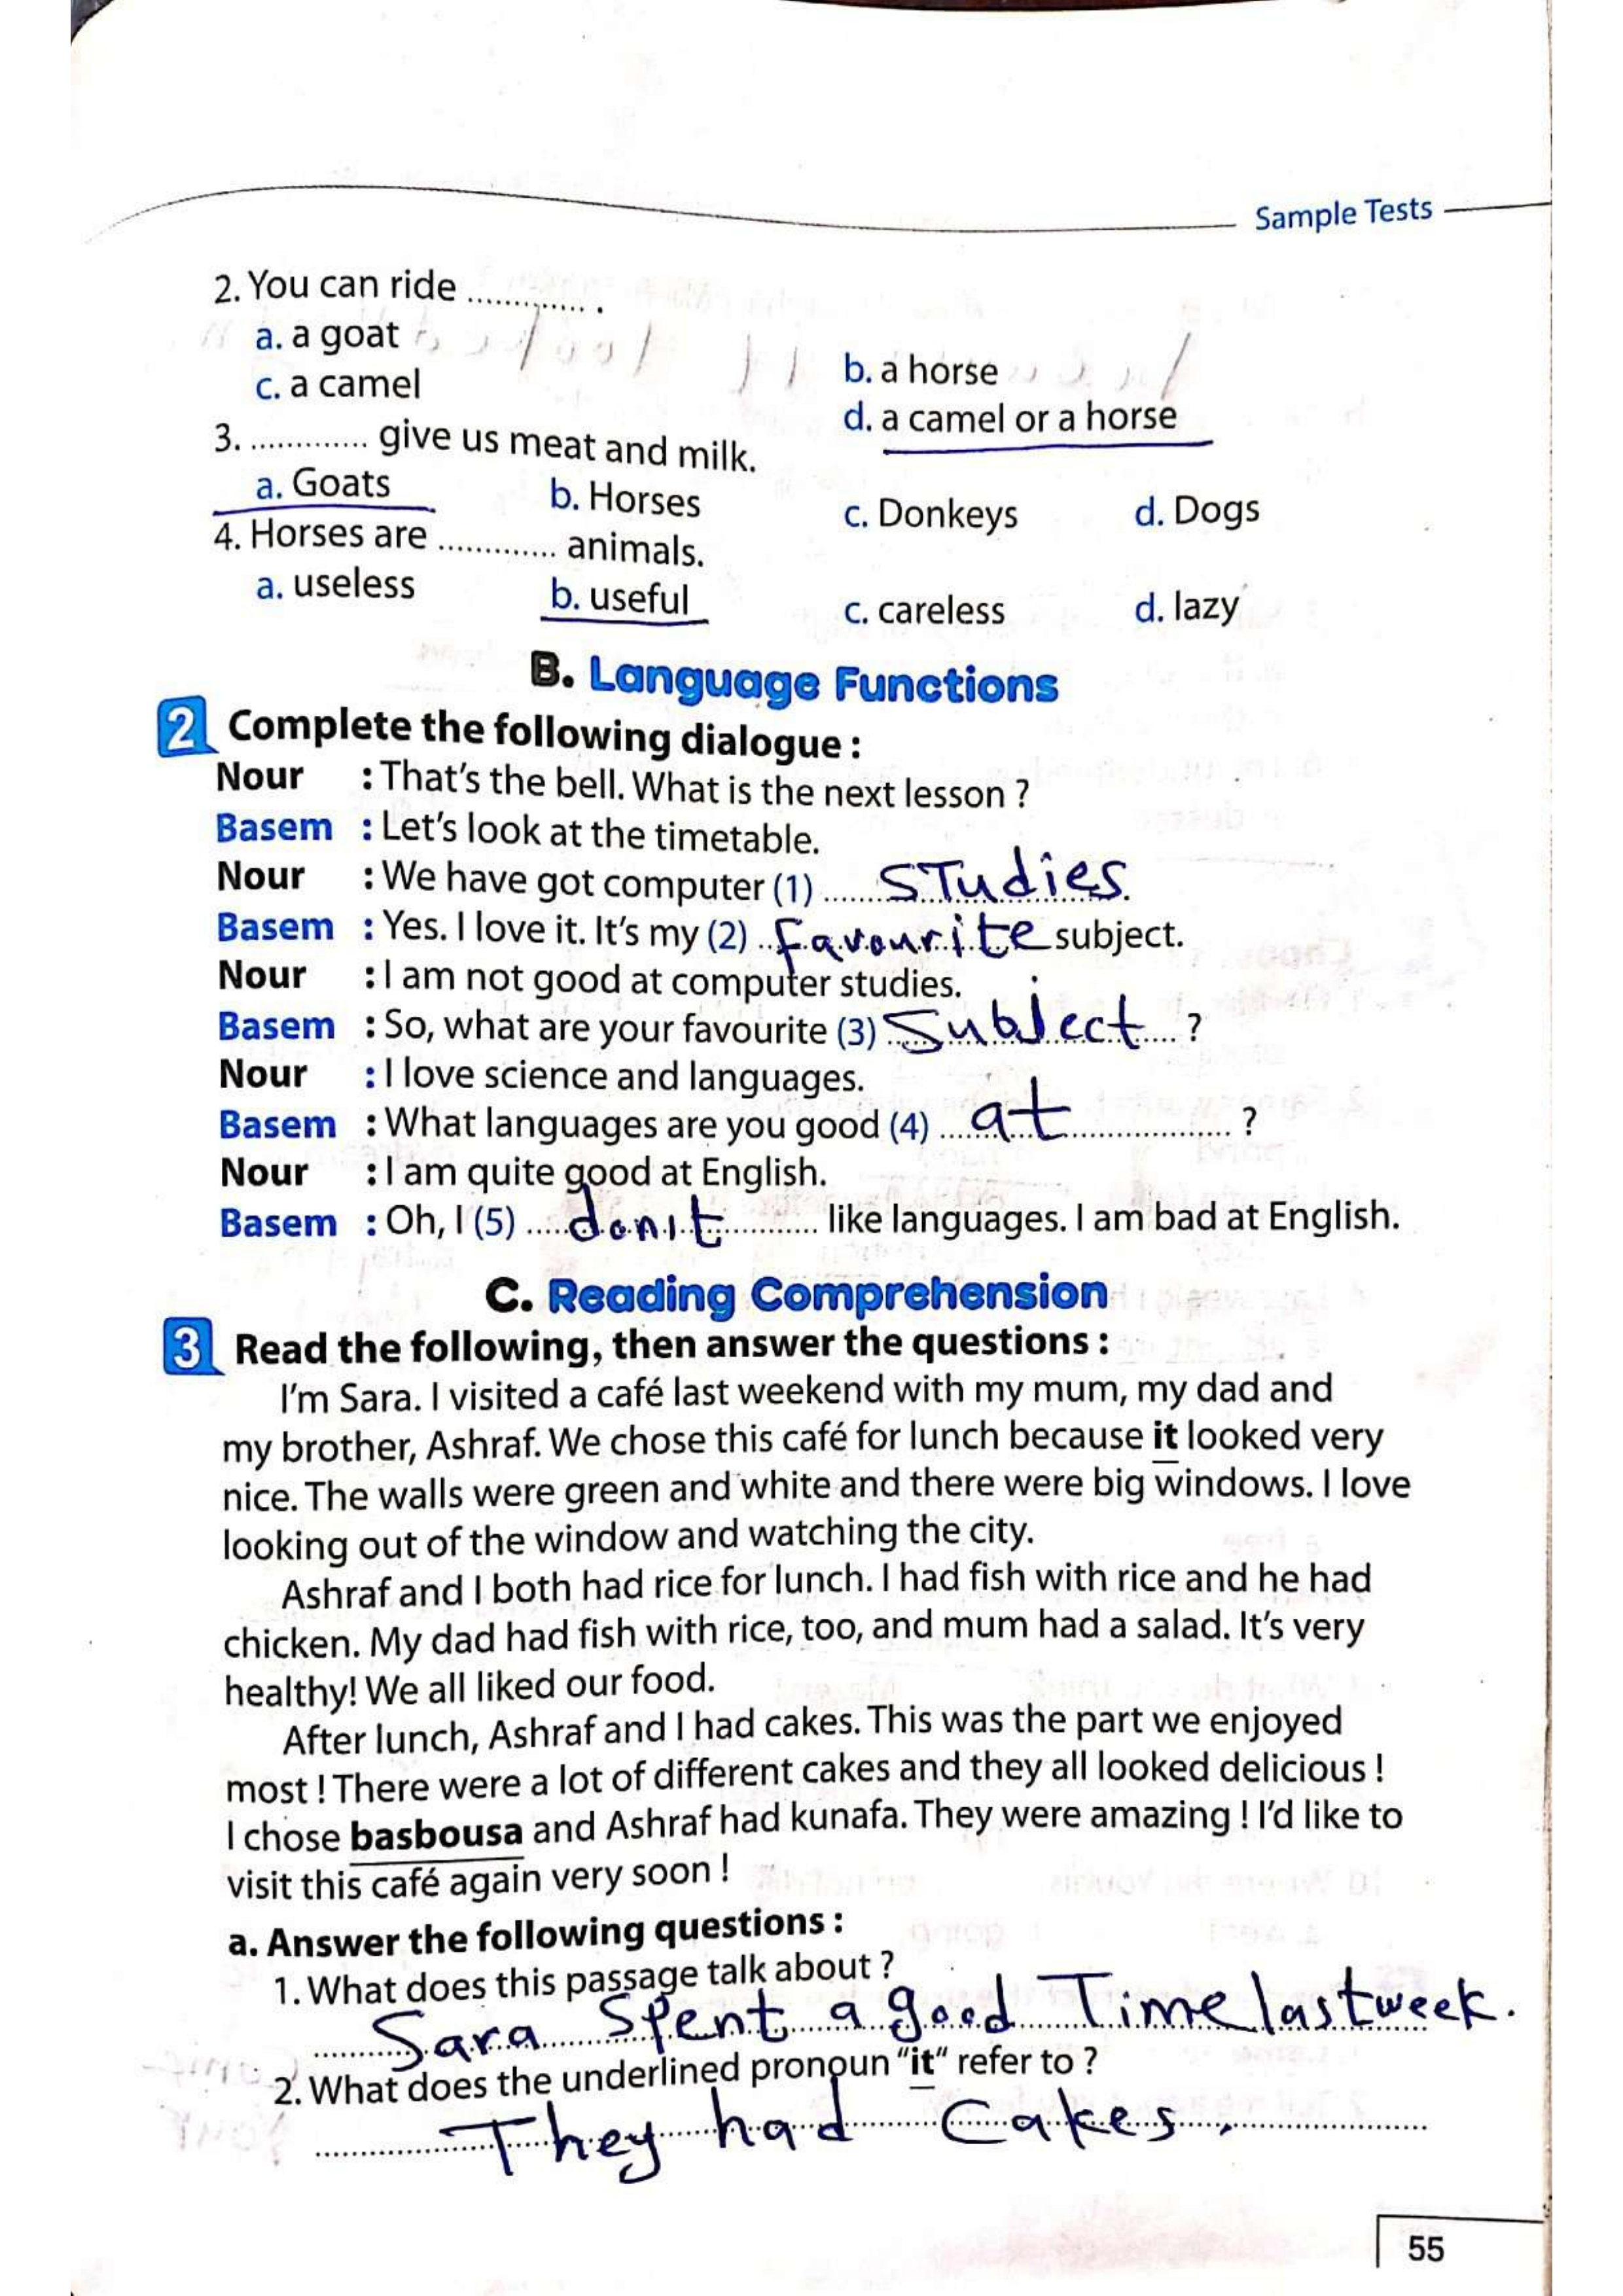 Sample Tests
2. You can ride .............. .
a. a goat
b. a horse
c. a camel
d. a camel or a horse
3. ............. give us meat and milk.
a. Goats
b. Horses
c. Donkeys
d. Dogs
4. Horses are ............. animals.
a. useless
b. useful
c. careless
d. lazy
B. Language Functions
2 Complete the following dialogue :
Nour : That's the bell. What is the next lesson ?
Basem : Let's look at the timetable.
Nour : We have got computer (1) STudies.
Basem : Yes. I love it. It's my (2) Favourite subject.
Nour : I am not good at computer studies.
Basem : So, what are your favourite (3) Subject ?
Nour : I love science and languages.
Basem : What languages are you good (4) at ?
Nour : I am quite good at English.
Basem : Oh, I (5) don't like languages. I am bad at English.
C. Reading Comprehension
3 Read the following, then answer the questions :
I'm Sara. I visited a café last weekend with my mum, my dad and
my brother, Ashraf. We chose this café for lunch because it looked very
nice. The walls were green and white and there were big windows. I love
looking out of the window and watching the city.
Ashraf and I both had rice for lunch. I had fish with rice and he had
chicken. My dad had fish with rice, too, and mum had a salad. It's very
healthy! We all liked our food.
After lunch, Ashraf and I had cakes. This was the part we enjoyed
most ! There were a lot of different cakes and they all looked delicious !
I chose basbousa and Ashraf had kunafa. They were amazing ! I'd like to
visit this café again very soon !
a. Answer the following questions :
1. What does this passage talk about ?
Sara Spent a good Time last week.
2. What does the underlined pronoun "it" refer to ?
They had Cakes.
55